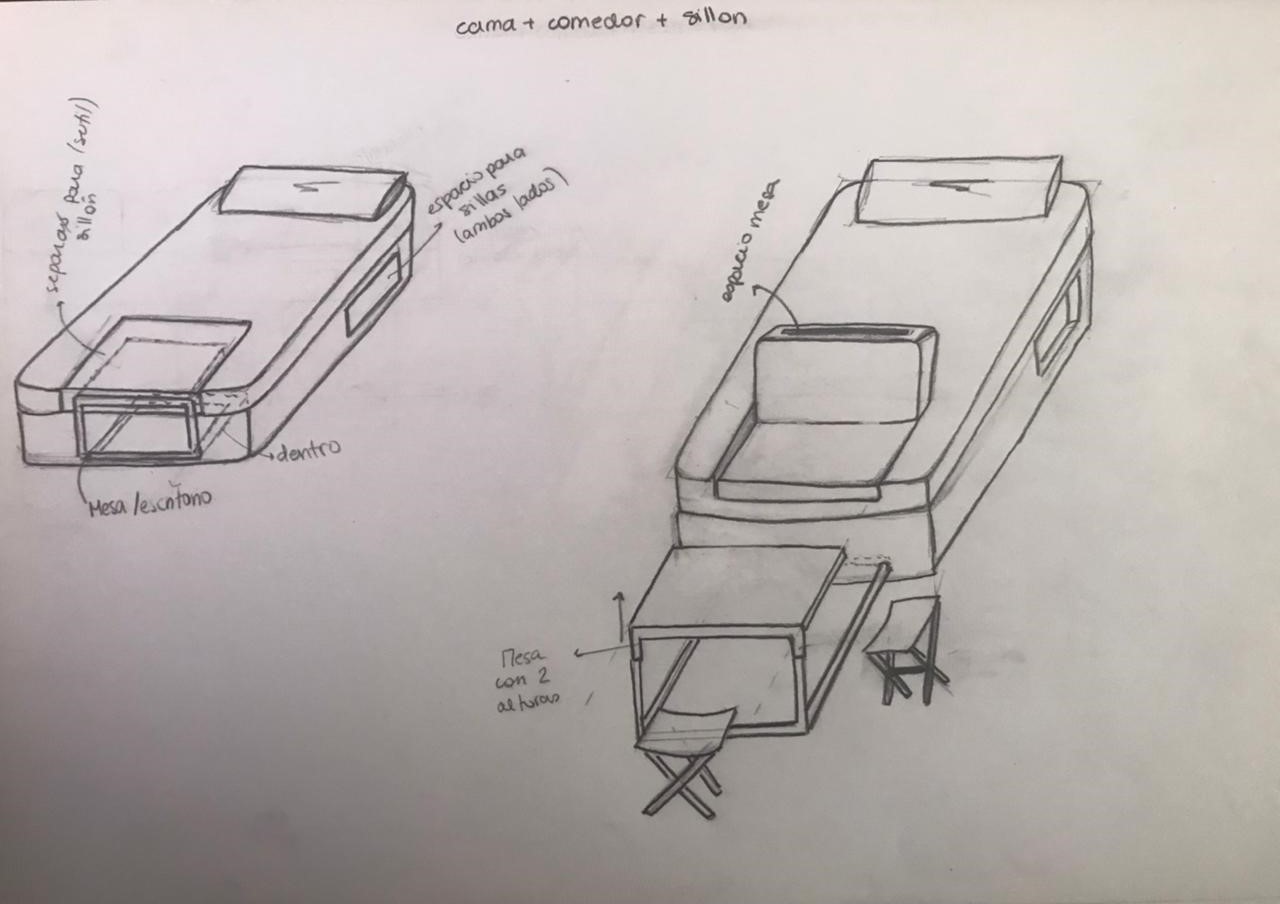 cama + comedor + sillon
separador para (sutil)
sillón
espacio para
sillas
(ambos lados)
dentro
Mesa /escritorio
espacio mesa
Mesa
con 2
alturas